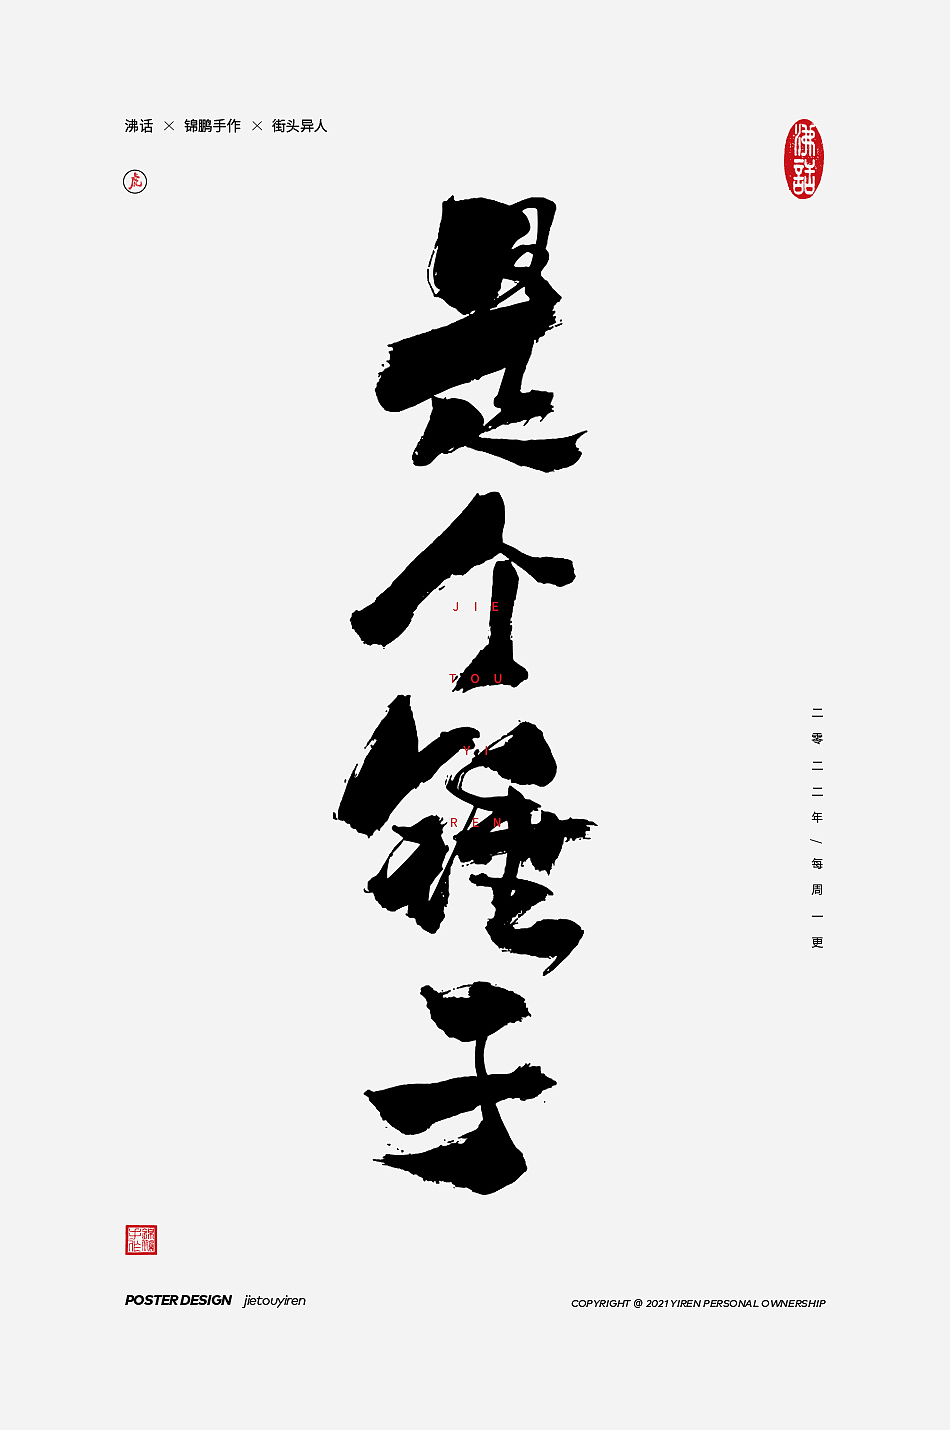 沸话 × 锦鹏手作 × 街头异人
沸話
虎
是个锤子
JIE
TOU
YI
REN
二零二二年/每周一更
锦鹏手作
POSTER DESIGN jietouyiren
COPYRIGHT @ 2021 YIREN PERSONAL OWNERSHIP